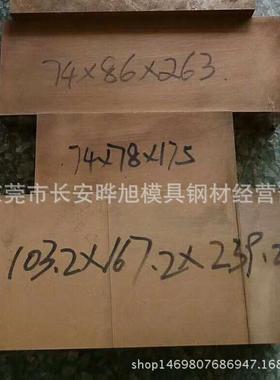 74×86×263.
.74×78×175
东莞市长安晔旭模具钢材经营
103.2×167.2×239.2
shop1469807686947.168